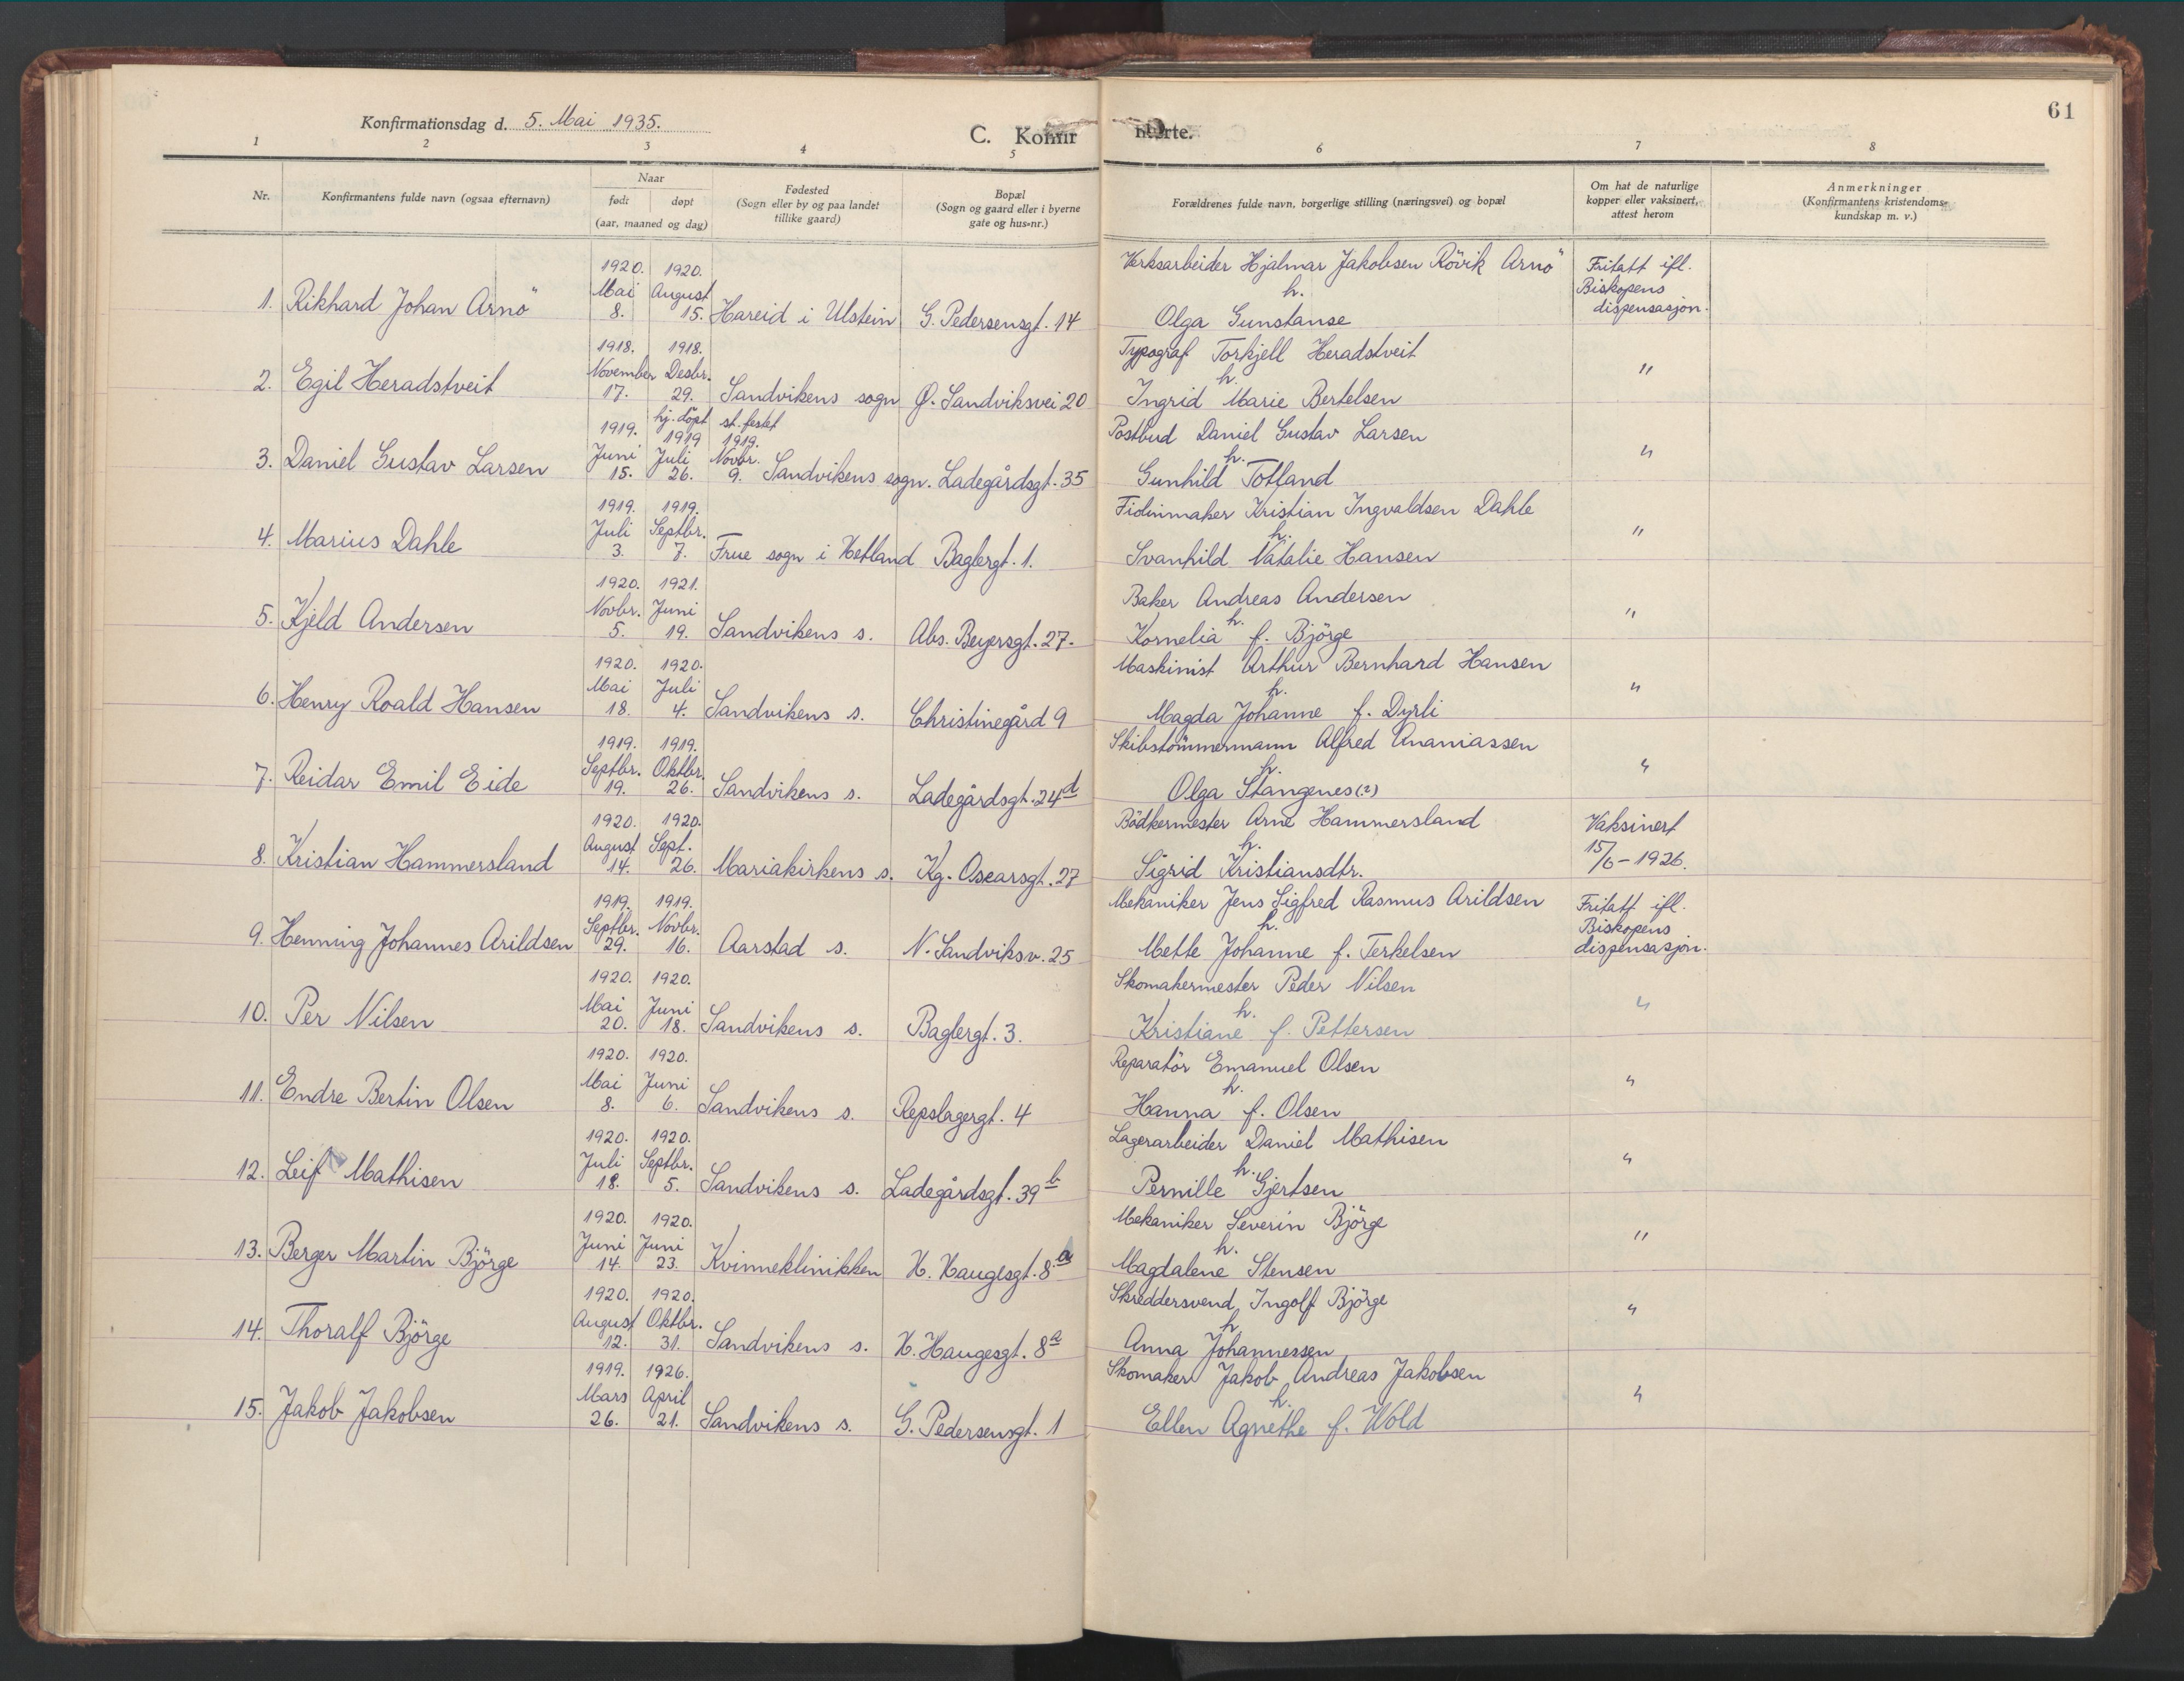 61
Konfirmationsdag d. 5. Mai 1935.
C. Konfir merte.
1 2 3 4 5 6 7 8
Nr. Konfirmantens fulde navn (ogsaa efternavn) Naar født døpt (aar, maaned og dag) Fødested (Sogn eller by og paa landet tillike gaard) Bopæl (Sogn og gaard eller i byerne gate og hus-nr.) Forældrenes fulde navn, borgerlige stilling (næringsvei) og bopæl Om hat de naturlige kopper eller vaksinert, attest herom Anmerkninger (Konfirmantens kristendoms-kundskap m. v.)
1920. 1920. Verksarbeider Hjalmar Jakobsen Rövik Arnö Fritatt ifl.
Mai August h. Biskopens
1. Rikhard Johan Arnö 8. 15. Hareid i Ulstein G. Pedersensgt. 14 Olga Gunstanse dispensasjon.
1918. 1918. Typograf Torkjell Heradstveit
November Desbr. h. "
2. Egil Heradstveit 17. 29. Sandvikens sogn Ø. Sandviksvei 20 Ingrid Marie Bertelsen
hj. döpt st. festet
1919. 1919 1919. Postbud Daniel Gustav Larsen
Juni Juli Novbr. h. "
3. Daniel Gustav Larsen 15. 26. 9. Sandvikens sogn. Ladegårdsgt. 35 Gunhild Totland
1919. 1919. Kristian Ingvaldsen Dahle
Juli Septbr. h. "
4. Marius Dahle 3. 7. Frue sogn i Hetland Baglergt. 1. Svanhild Natalie Hansen
1920. 1921. Baker Andreas Andersen
Novbr. Juni h. "
5. Kjeld Andersen 5. 19. Sandvikens s. Abs. Beyersgt. 27. Kornelia f. Björge
1920. 1920. Maskinist Arthur Bernhard Hansen
Mai Juli h. "
6. Henry Roald Hansen 18. 4. Sandvikens s. Christinegård 9 Magda Johanne f. Dyrli
1919. 1919. Skibstömmermann Alfred Ananiassen
Septbr. Oktbr. h. "
7. Reidar Emil Eide 19. 26. Sandvikens s. Ladegårdsgt. 24d Olga Stangenes (?)
1920. 1920. Bödkermester Arne Hammersland Vaksinert
August Sept. h. 15/6-1926.
8. Kristian Hammersland 14. 26. Mariakirkens s. Kg. Oscarsgt. 27 Sigrid Kristiansdtr.
1919. 1919. Mekaniker Jens Sigfred Rasmus Arildsen Fritatt ifl.
Septbr. Novbr. h. Biskopens
9. Henning Johannes Arildsen 29. 16. Aarstad s. N. Sandviksv. 25 Mette Johanne f. Terkelsen dispensasjon.
1920. 1920. Skomakermester Peder Nilsen
Mai Juni h. "
10. Per Nilsen 20. 18. Sandvikens s. Baglergt. 3. Kristiane f. Pettersen
1920. 1920. Reparatör Emanuel Olsen
Mai Juni h. "
11. Endre Bertin Olsen 8. 6. Sandvikens s. Repslagergt. 4 Hanna f. Olsen
1920. 1920. Lagerarbeider Daniel Mathisen
Juli Septbr. h. "
12. Leif Mathisen 18. 5. Sandvikens s. Ladegårdsgt. 39b Pernille Gjertsen
1920. 1920. Mekaniker Severin Björge
Juni Juni h. "
13. Berger Martin Björge 14. 23. Kvinneklinikken H. Haugesgt. 8a Magdalene Stensen
1920. 1920. Skreddersvend Ingolf Björge
August Oktbr. h. "
14. Thoralf Björge 12. 31. Sandvikens s. H. Haugesgt. 8a Anna Johannessen
1919. 1926. Skomaker Jakob Andreas Jakobsen
Mars April h. "
15. Jakob Jakobsen 26. 21. Sandvikens s. G. Pedersensgt. 1 Ellen Agnethe f. Wold